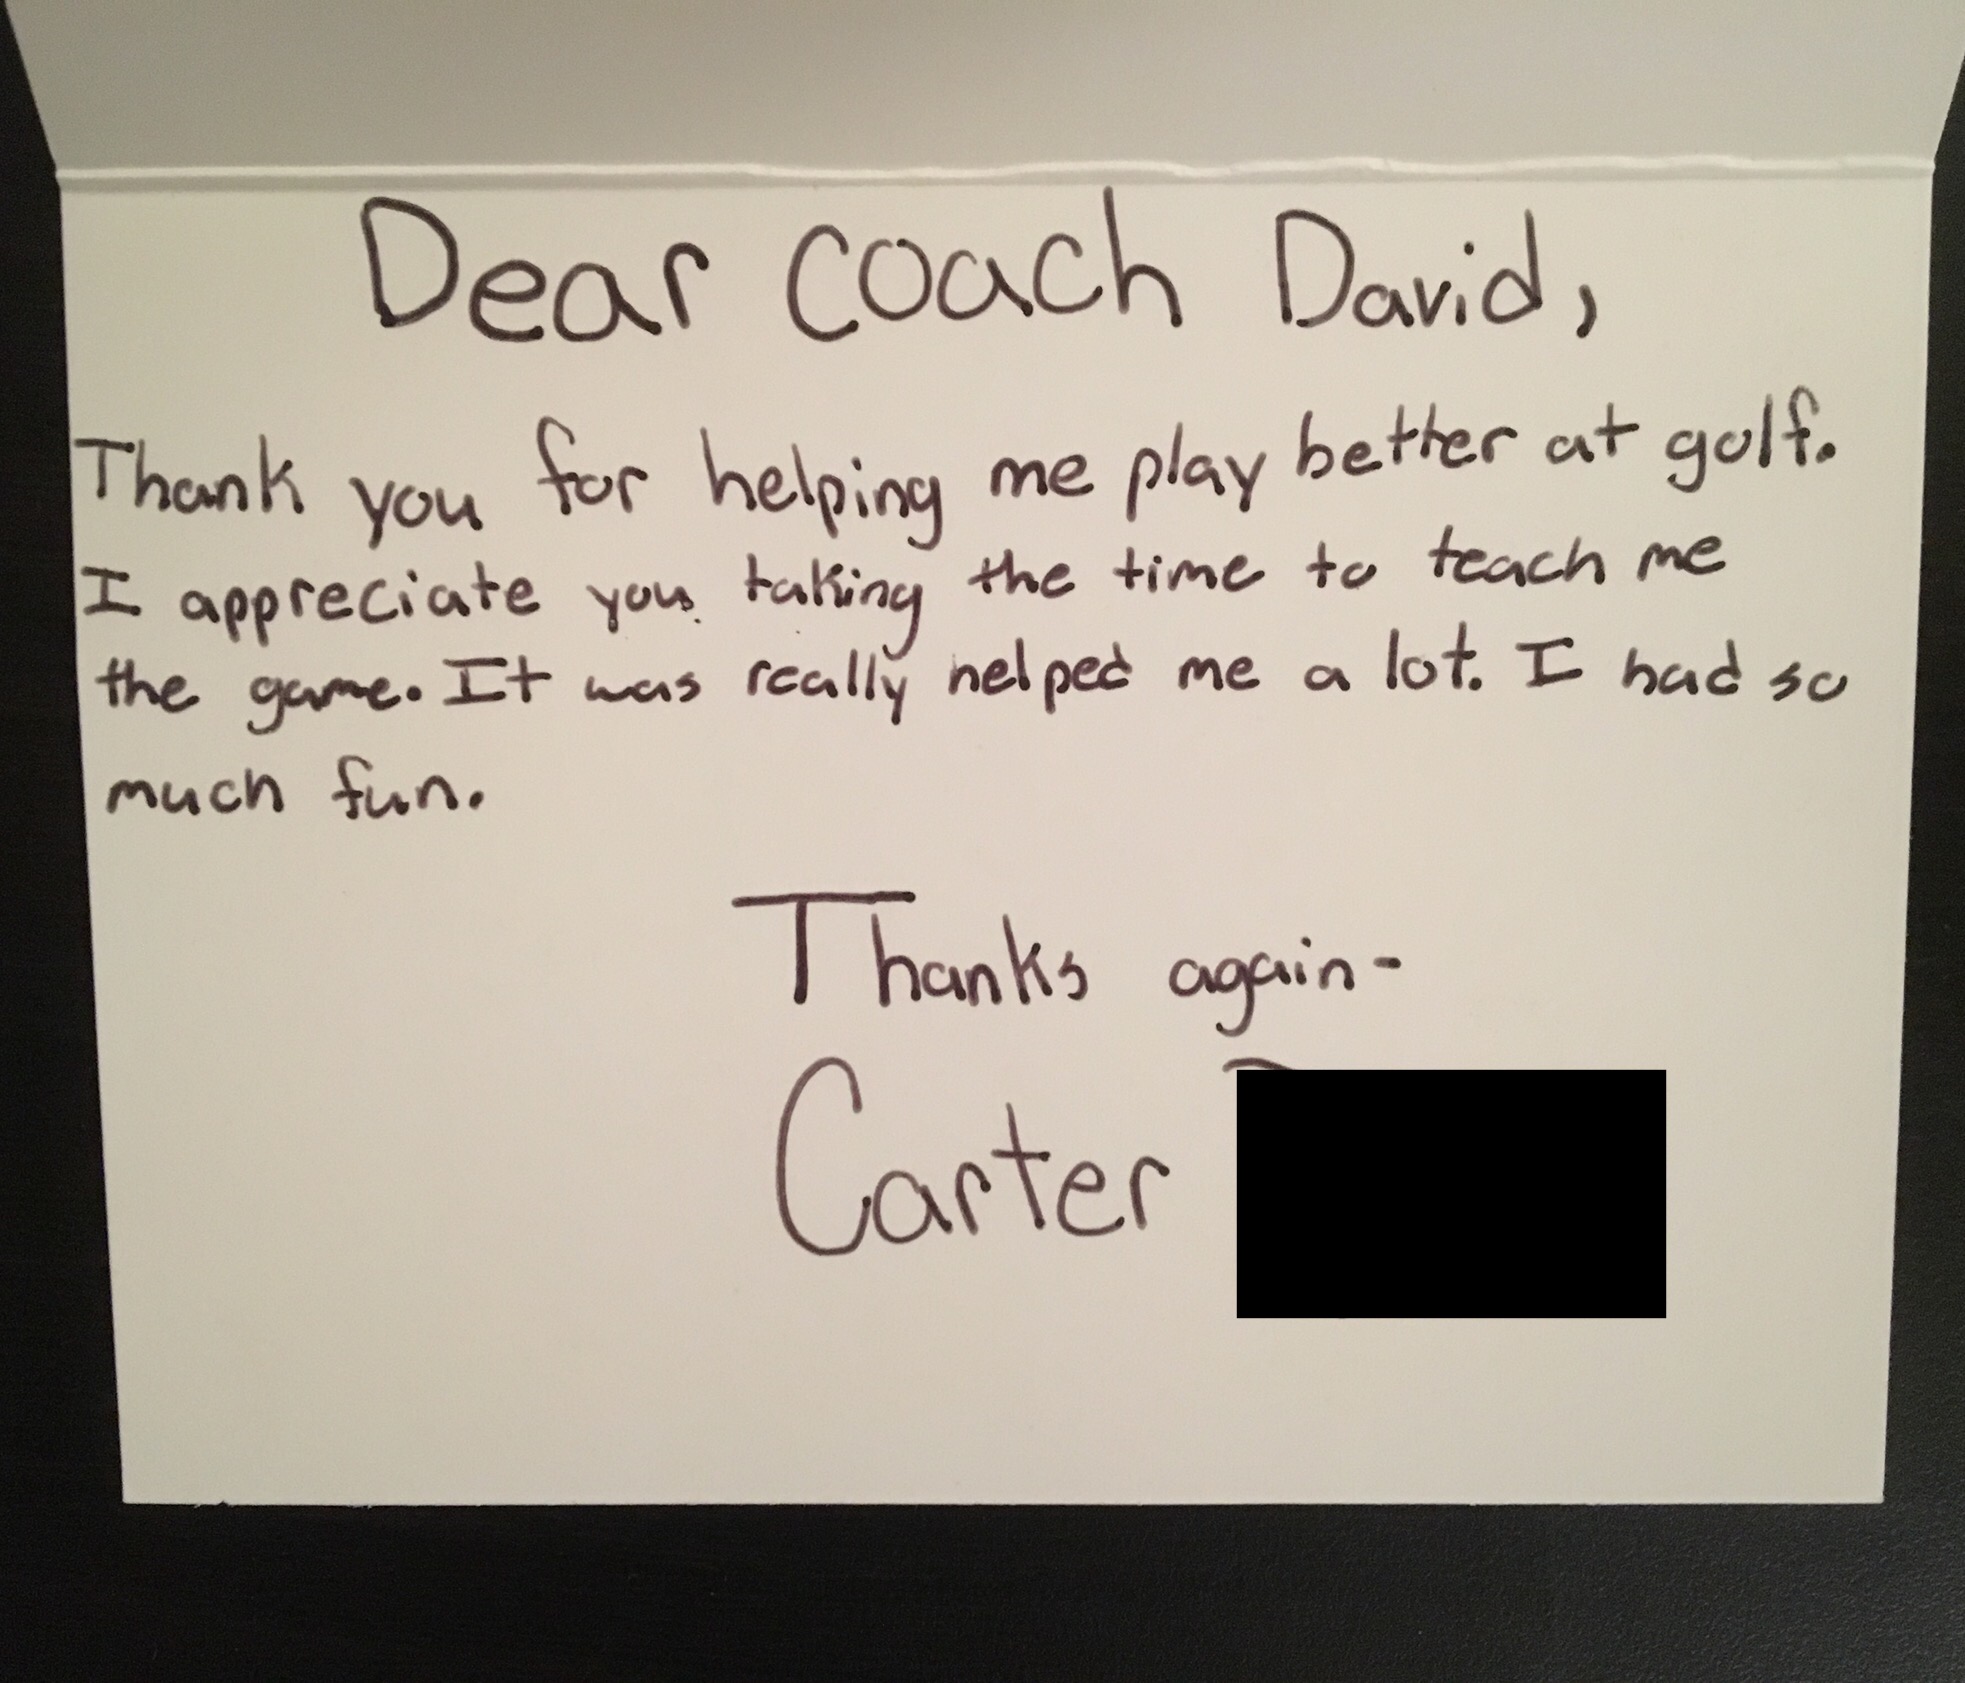 Dear Coach David,
Thank you for helping me play better at golf.
I appreciate you taking the time to teach me
the game. It was really helped me a lot. I had so
much fun.
Thanks again-
Carter